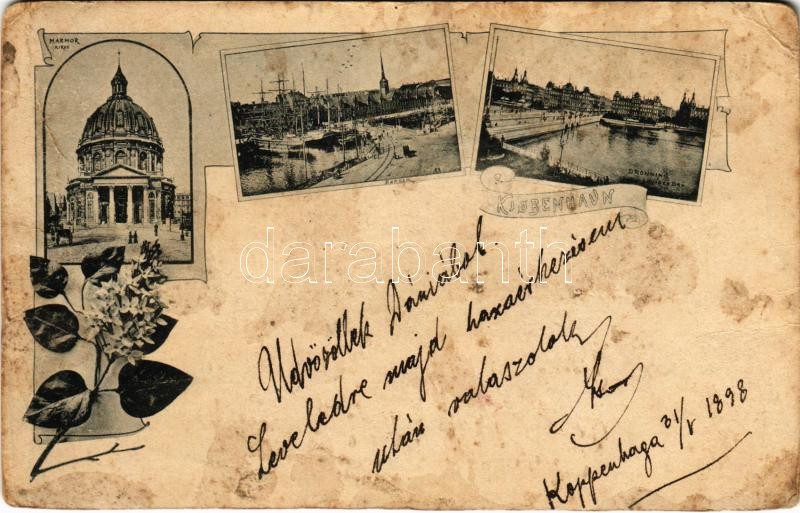 MARMOR
KIRKE
DRONNING
KJØBENHAVN
darabanth
Üdvözöllek Dániából.
Leveledre majd hazaérkezésem
után válaszolok
Koppenhaga 31/V 1898